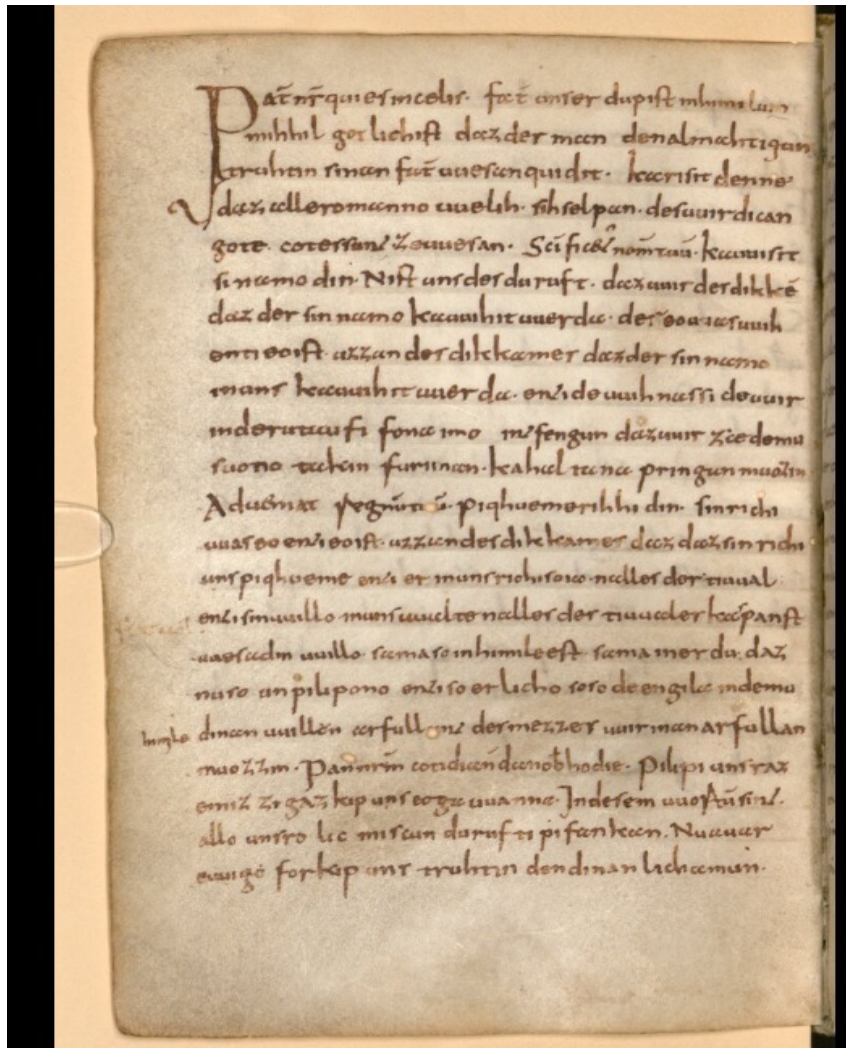 Pat̄ nr̄ qui es in celis. fat̄ unser du pist in himilum
mihhil gotlichist daz der man den almahtigun
truhtin sinan fat̄ uuesan quidit. karisit denne
daz allero manno uuelih. sih selpan. des uuirdican
gote. cotes sun ze uuesan. Sc̄ificet͛ nom̄ tuū. kauuisit
si namo din. Nist uns des duruft. daz uuir des dikkē
daz der sin namo kauuihit uuerda. der eo uuas uuih
enti eo ist. uzzan des dikkames daz der sin namo
in uns kauuihit uuerda. enti de uuihnassi de uuir
in deru taufi fona imo intfengun daz uuir ze demu
suonotakin furi inan. kahaltana pringan muozin
Adueniat regnū tuū. piqhueme rihhi din. sin richi
uuas eo enti eo ist. uzzan des dikkames daz daz sin richi
uns piqhueme enti er in uns richiso. nalles der tiuual
enti sin uuillo in uns uualte nalles des tiuuales kaspanst
uuesa din uuillo. sama so in himile est. sama in erdu. daz
nu so unpilipono enti so erlicho soso de engila in demu
dinan uuillen arfullant. des mezzes uuir inan arfullan
himile
muozzin. Panē nrm̄ cotidianū da nob̄ hodie. Pilipi unsraz
emizzigaz kip uns eogauuanna. In desem uuortū sint.
allo unsro licmiscun durufti pifankan. Nu auar
euuigo forkip uns truhtin den dinan lichamun.